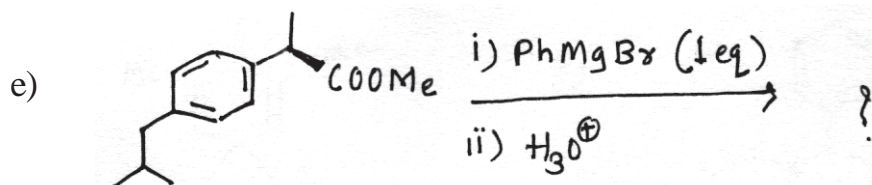 e)
COOMe
i) PhMgBr (1eq)
ii) H3O⊕
?